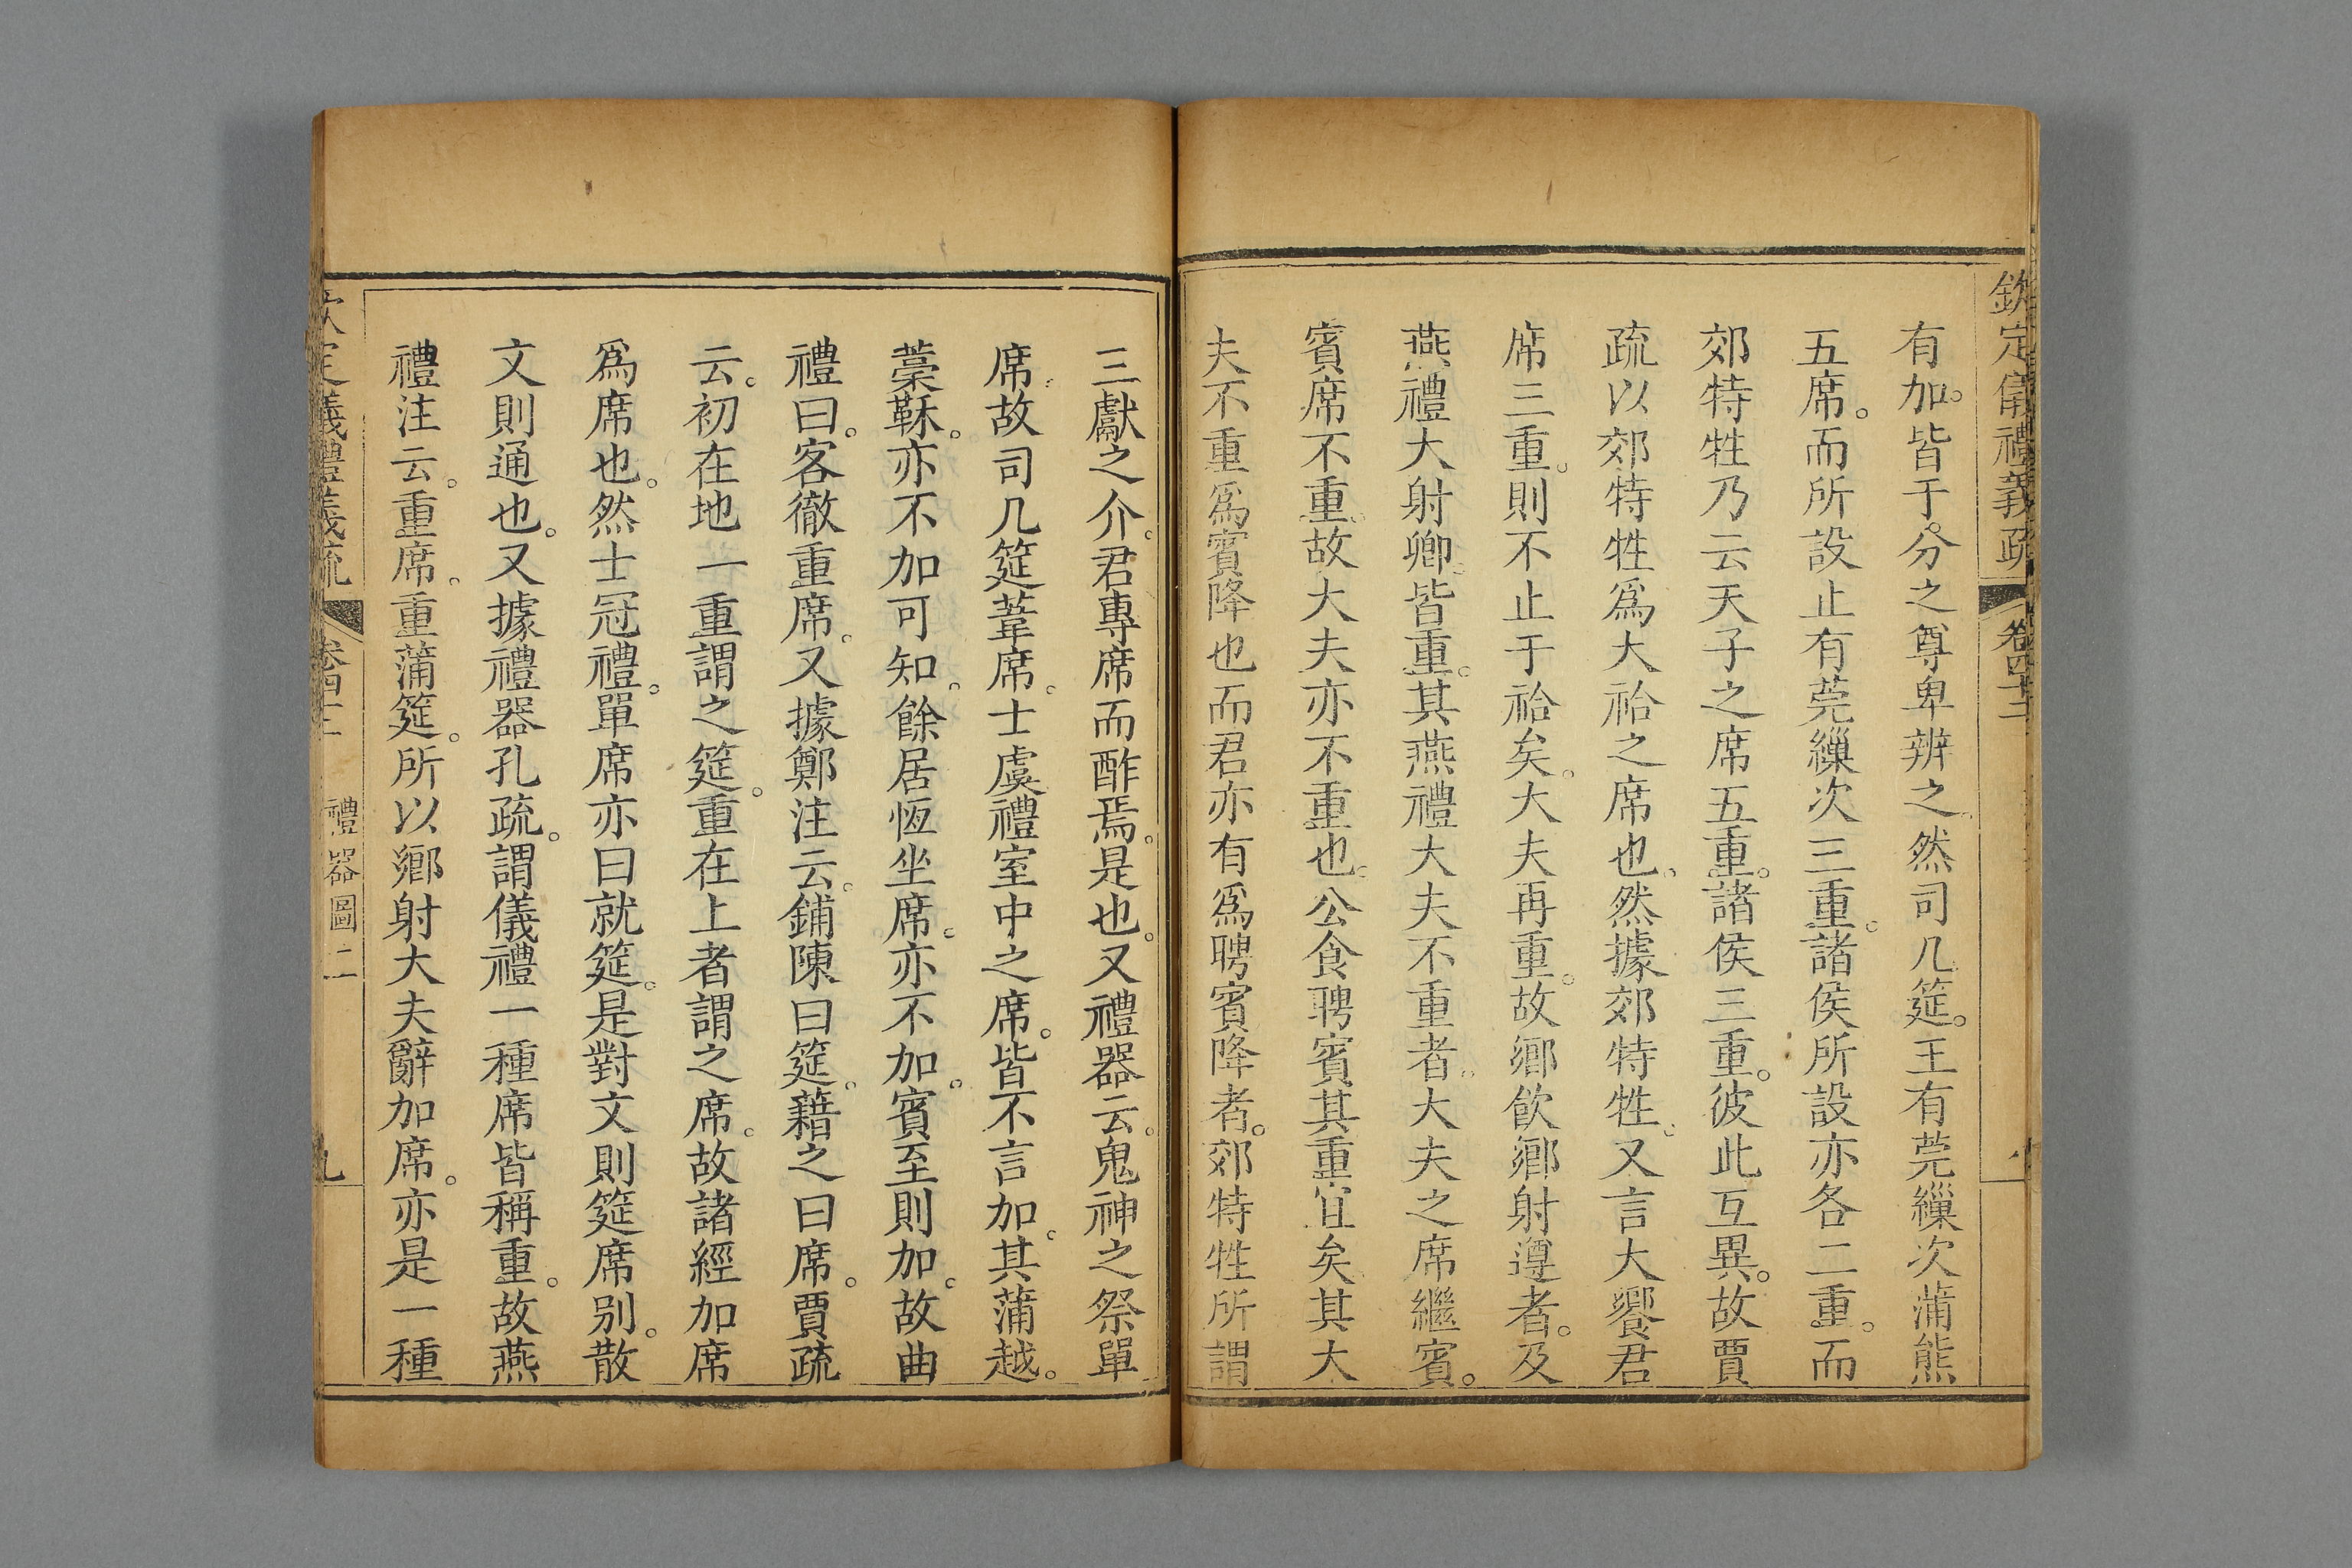 欽定儀禮義疏 卷四十三
有加。皆于分之尊卑辨之。然司几筵。王有莞繅次蒲熊
五席。而所設止有莞繅次三重。諸侯所設亦各二重。而
郊特牲乃云天子之席五重。諸侯三重。彼此互異。故賈
疏以郊特牲爲大祫之席也。然據郊特牲。又言大饗君
席三重。則不止于祫矣。大夫再重。故鄉飲鄉射遵者。及
燕禮大射卿。皆重。其燕禮大夫不重者。大夫之席繼賓。
賓席不重。故大夫亦不重也。公食聘賓其重宜矣。其大
夫不重爲賓降也而君亦有爲聘賓降者。郊特牲所謂
三獻之介。君專席而酢焉。是也。又禮器云。鬼神之祭單
席。故司几筵葦席。士虞禮室中之席。皆不言加。其蒲越。
藁鞂。亦不加可知。餘居恆坐席。亦不加。賓至則加。故曲
禮曰。客徹重席。又據鄭注云。鋪陳曰筵。藉之曰席。賈疏
云。初在地一重謂之筵。重在上者謂之席。故諸經加席
爲席也。然士冠禮。單席亦曰就筵。是對文則筵席别。散
文則通也。又據禮器孔疏。謂儀禮一種席皆稱重。故燕
禮注云。重席。重蒲筵。所以鄉射大夫辭加席。亦是一種
欽定儀禮義疏 卷四十三 禮器圖二 九